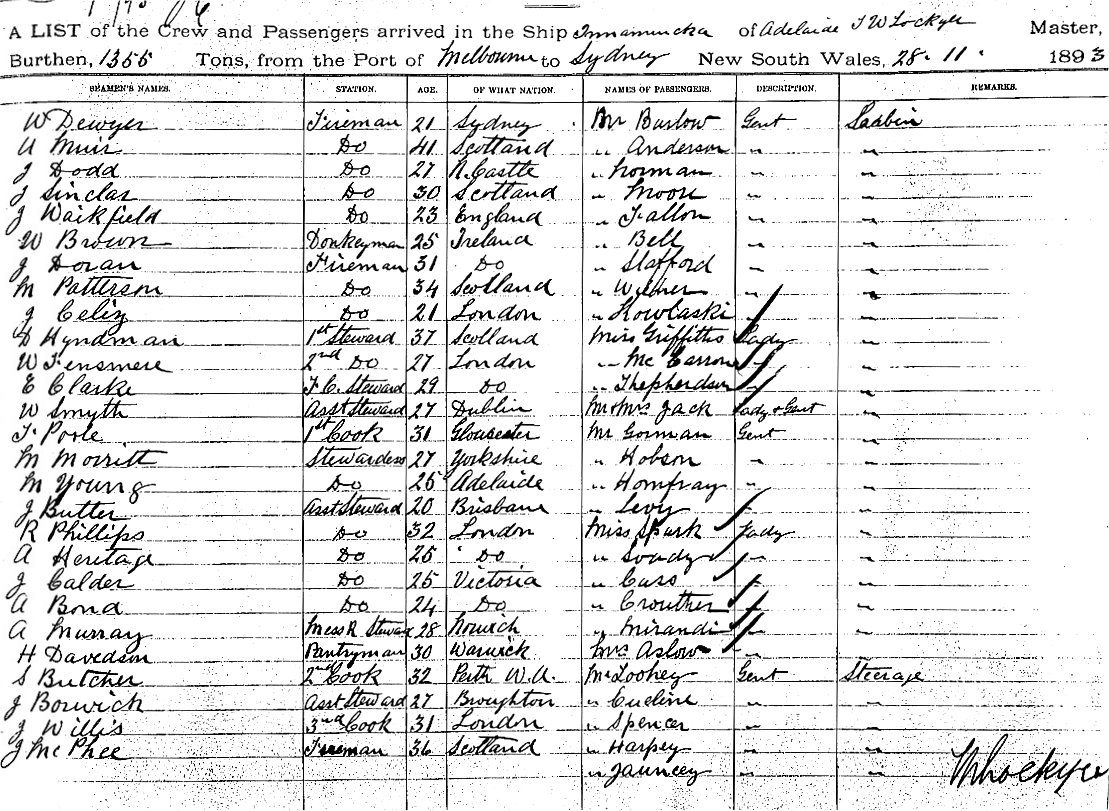 A LIST of the Crew and Passengers arrived in the Ship Innamincka of Adelaide T W Lockyer Master,
Burthen, 1355 Tons, from the Port of Melbourne to Sydney New South Wales, 28. 11. 1893
SEAMEN'S NAMES. STATION. AGE. OF WHAT NATION. NAMES OF PASSENGERS. DESCRIPTION. REMARKS.
W Dewyer Fireman 21 Sydney Mr Barlow Gent Saabin
A Muir Do 41 Scotland " Anderson " "
J Dodd Do 27 N. Castle " Norman " "
J Sinclar Do 30 Scotland " Moore " "
J Waikfield Do 23 England " Fallon " "
W Brown Donkeyman 25 Ireland " Bell " "
J Doran Fireman 31 Do " Stafford " "
M Patterson Do 34 Scotland " Wilmer " "
J Do 21 London " Kowlaski " "
D Hyndman 1st Steward 37 Scotland Miss Griffiths Lady "
W Fensmere 2nd Do 27 London " Mc Earron " "
E Clarke F. C. Steward 29 Do " Thepherdson " "
W Smyth Asst Steward 27 Dublin Mr & Mrs Jack Lady & Gent "
F. Poole 1st Cook 31 Gloucester Mr Gorman Gent "
M Morritt Stewardess 27 Yorkshire " Hobson " "
M Young Do 25 Adelaide " Homfray " "
J Butler Asst Steward 20 Brisbane " Levy " "
R Phillips Do 32 London Miss Spark Lady "
A Heritage Do 25 Do " " "
J Calder Do 25 Victoria " Cass " "
A Bond Do 24 Do " Crouther " "
A Murray Mess R Steward 28 Norwich " Mirandi " "
H Davedson Pantryman 30 Warwick Mrs Aslow " "
S Butcher 2nd Cook 32 Perth W. A. Mr Loohey Gent Steerage
J Borwick Asst Steward 27 Broughton " Cueline " "
J Willis 3rd Cook 31 London " Spencer " "
J McPhee Fireman 36 Scotland " Harpey " "
" Jauncey " "
W Lockyer